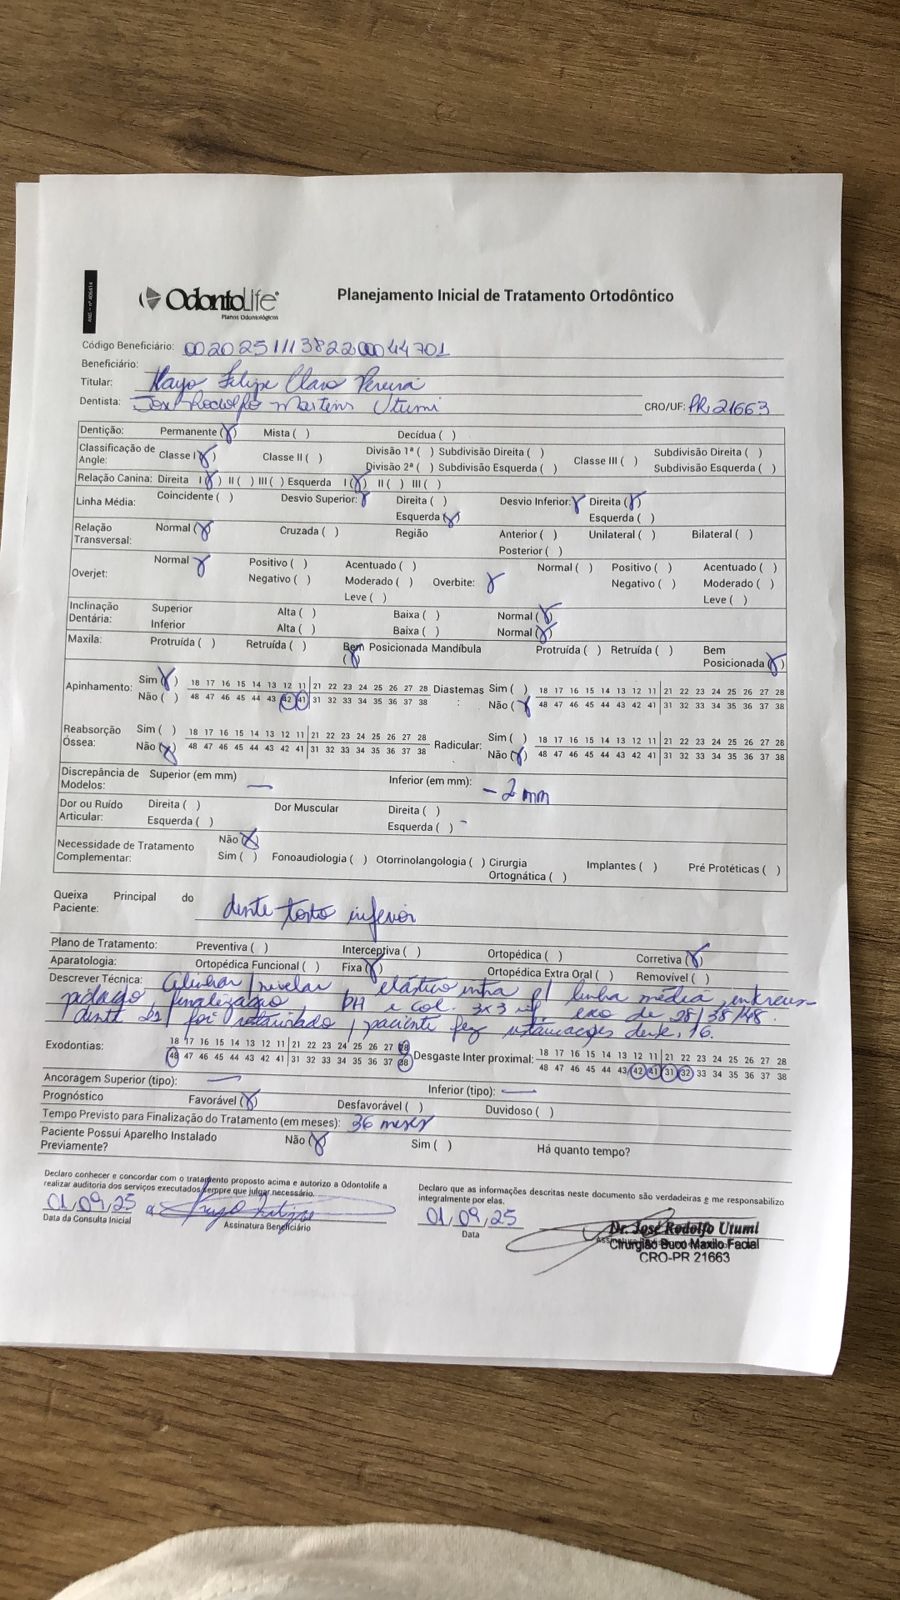 ANS - nº 406414
OdontoLife®
Planos Odontológicos
Planejamento Inicial de Tratamento Ortodôntico
Código Beneficiário: 00202511138220044701
Beneficiário:
Titular: Kayo Felipe Claro Pereira
Dentista: José Rodolfo Martins Utumi CRO/UF: PR, 21663
Dentição: Permanente (X) Mista ( ) Decídua ( )
Classificação de Angle: Classe I (X) Classe II ( ) Divisão 1ª ( ) Subdivisão Direita ( ) Classe III ( ) Subdivisão Direita ( )
Divisão 2ª ( ) Subdivisão Esquerda ( ) Subdivisão Esquerda ( )
Relação Canina: Direita I (X) II ( ) III ( ) Esquerda I (X) II ( ) III ( )
Linha Média: Coincidente ( ) Desvio Superior: X Direita ( ) Desvio Inferior: X Direita (X)
Esquerda (X) Esquerda ( )
Relação Transversal: Normal (X) Cruzada ( ) Região Anterior ( ) Unilateral ( ) Bilateral ( )
Posterior ( )
Overjet: Normal X Positivo ( ) Acentuado ( ) Overbite: X Normal ( ) Positivo ( ) Acentuado ( )
Negativo ( ) Moderado ( ) Negativo ( ) Moderado ( )
Leve ( ) Leve ( )
Inclinação Dentária: Superior Alta ( ) Baixa ( ) Normal (X)
Inferior Alta ( ) Baixa ( ) Normal (X)
Maxila: Protruída ( ) Retruída ( ) Bem Posicionada (X) Mandíbula Protruída ( ) Retruída ( ) Bem Posicionada (X)
Apinhamento: Sim (X) 18 17 16 15 14 13 12 11 21 22 23 24 25 26 27 28 Diastemas: Sim ( ) 18 17 16 15 14 13 12 11 21 22 23 24 25 26 27 28
Não ( ) 48 47 46 45 44 43 42 41 31 32 33 34 35 36 37 38 Não (X) 48 47 46 45 44 43 42 41 31 32 33 34 35 36 37 38
Reabsorção Óssea: Sim ( ) 18 17 16 15 14 13 12 11 21 22 23 24 25 26 27 28 Radicular: Sim ( ) 18 17 16 15 14 13 12 11 21 22 23 24 25 26 27 28
Não (X) 48 47 46 45 44 43 42 41 31 32 33 34 35 36 37 38 Não (X) 48 47 46 45 44 43 42 41 31 32 33 34 35 36 37 38
Discrepância de Modelos: Superior (em mm) — Inferior (em mm): - 2 mm
Dor ou Ruído Articular: Direita ( ) Dor Muscular Direita ( )
Esquerda ( ) Esquerda ( ) -
Necessidade de Tratamento Complementar: Não (X)
Sim ( ) Fonoaudiologia ( ) Otorrinolangologia ( ) Cirurgia Ortognática ( ) Implantes ( ) Pré Protéticas ( )
Queixa Principal do Paciente: dente torto inferior
Plano de Tratamento: Preventiva ( ) Interceptiva ( ) Ortopédica ( ) Corretiva (X)
Aparatologia: Ortopédica Funcional ( ) Fixa (X) Ortopédica Extra Oral ( ) Removível ( )
Descrever Técnica: Alinhar / nivelar, elástico intra p/ linha média, intercus-
pidação, finalização, PH e col. 3x3 inf, exo de 28/38/48.
dente 21 foi , paciente fez restaurações dente 16.
Exodontias: 18 17 16 15 14 13 12 11 21 22 23 24 25 26 27 28 Desgaste Inter proximal: 18 17 16 15 14 13 12 11 21 22 23 24 25 26 27 28
48 47 46 45 44 43 42 41 31 32 33 34 35 36 37 38 48 47 46 45 44 43 42 41 31 32 33 34 35 36 37 38
Ancoragem Superior (tipo): — Inferior (tipo): —
Prognóstico Favorável (X) Desfavorável ( ) Duvidoso ( )
Tempo Previsto para Finalização do Tratamento (em meses): 36 meses
Paciente Possui Aparelho Instalado Previamente? Não (X) Sim ( ) Há quanto tempo?
Declaro conhecer e concordar com o tratamento proposto acima e autorizo a Odontolife a realizar auditoria dos serviços executados sempre que julgar necessário.
Declaro que as informações descritas neste documento são verdadeiras e me responsabilizo integralmente por elas.
01, 09, 25
Data da Consulta Inicial Assinatura Beneficiário
01, 09, 25
Data
Dr. José Rodolfo Utumi
Cirurgião Buco Maxilo Facial
CRO-PR 21663